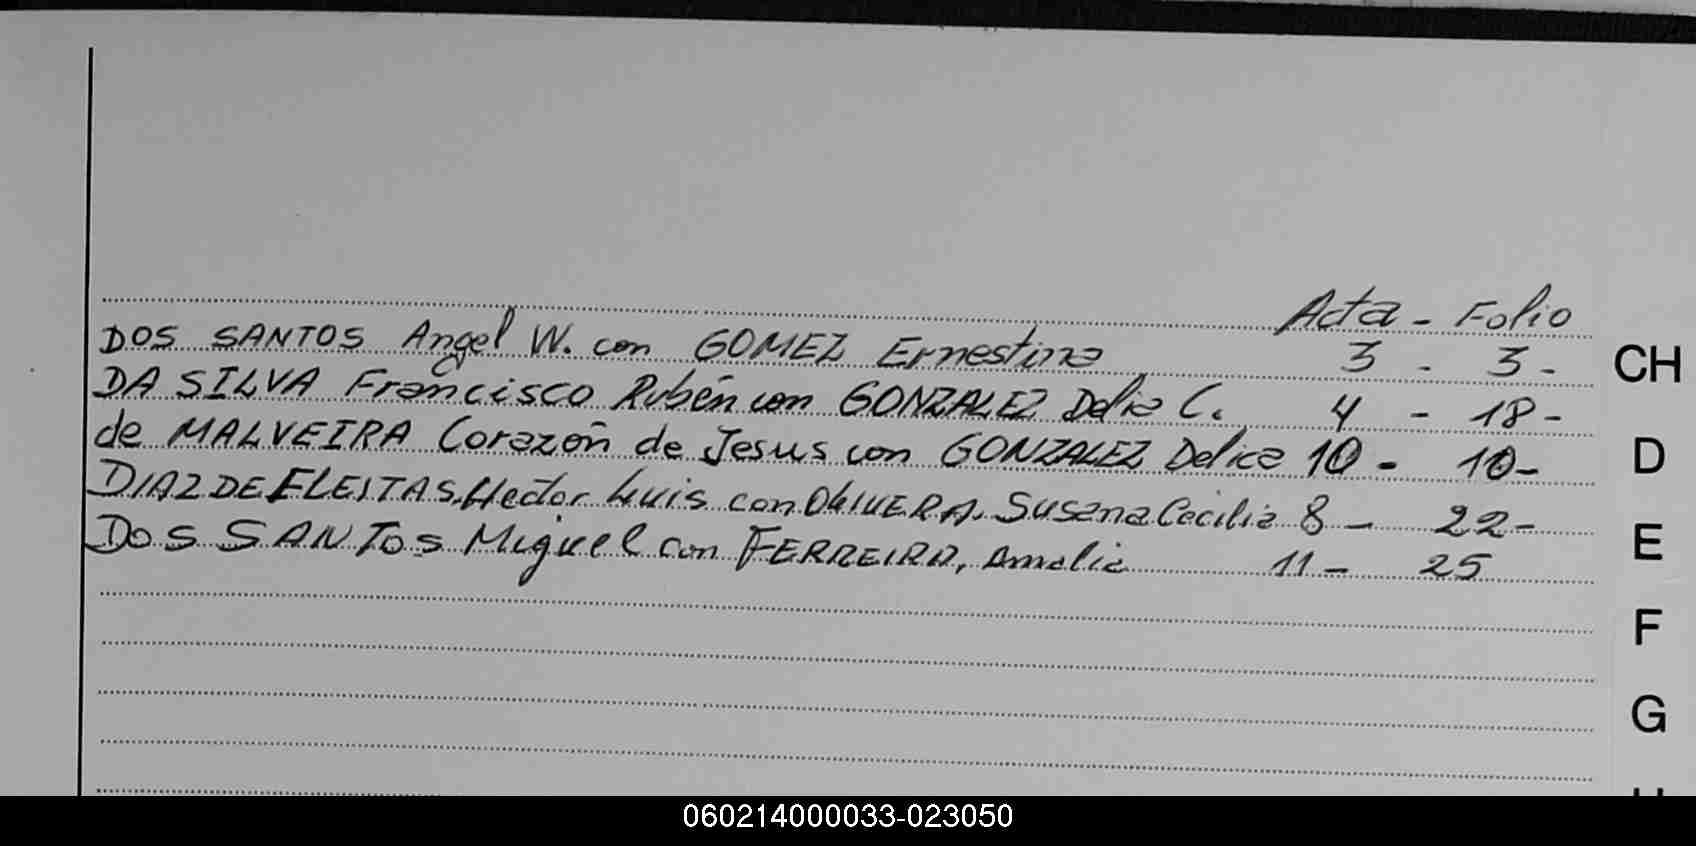 Acta - Folio
DOS SANTOS Angel W. con GOMEZ Ernestina 3 - 3 -
CH
DA SILVA Francisco Rubén con GONZALEZ Delia C. 4 - 18 -
de MALVEIRA Corazón de Jesus con GONZALEZ Delica 10 - 10 -
D
DIAZ DE FLEITAS, Hector Luis con OLIVERA, Susana Cecilia 8 - 22 -
E
DOS SANTOS Miguel con FERREIRA, Amalia 11 - 25
F
G
060214000033-023050